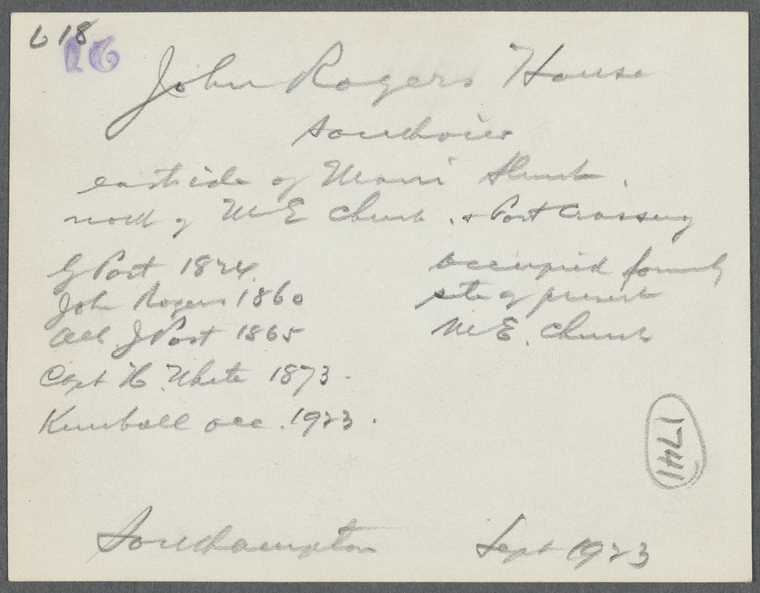 618
16
John Rogers House
east side of Main Street.
north of M E Church. & Post Crossing
G Post 1824.
John Rogers 1860
Alb J Post 1865
Capt H. White 1873.
Kimball occ. 1923.
occupied formerly
site of present
M E. Church
1741
Southampton Sept 1923